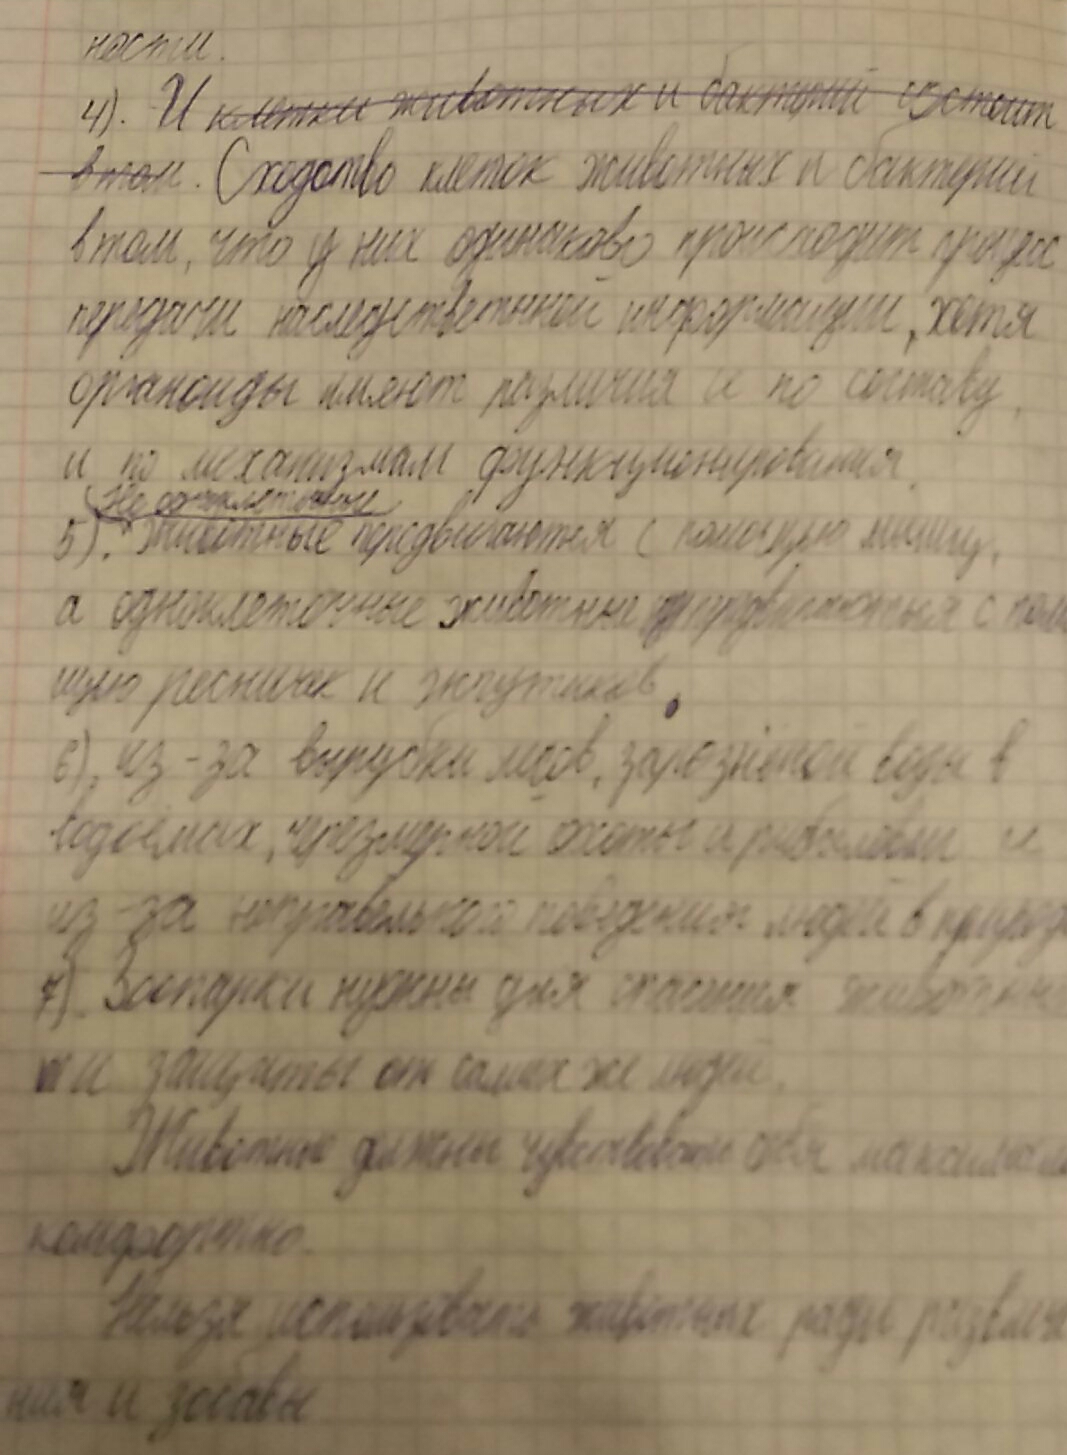 ности.
4). И клетки животных и бактерий состоит
в том. Сходство клеток животных и бактерий
в том, что у них одинаково происходит процесс
передачи наследственной информации, хотя
органоиды имеют различия и по составу,
и по механизмам функционирования.
Не одноклеточные
5). животные передвигаются с помощью мышц,
а одноклеточные животные передвигаются с помо
щью ресничек и жгутиков.
6). из-за вырубки лесов, загрязнённой воды в
водоёмах, чрезмерной охоты и рыбалки и
из-за неправильного поведения людей в природе
7). Зоопарки нужны для спасения животных
и защиты от самих же людей.
Животные должны чувствовать себя максималь
комфортно.
Нельзя использовать животных ради развлече
ния и забавы